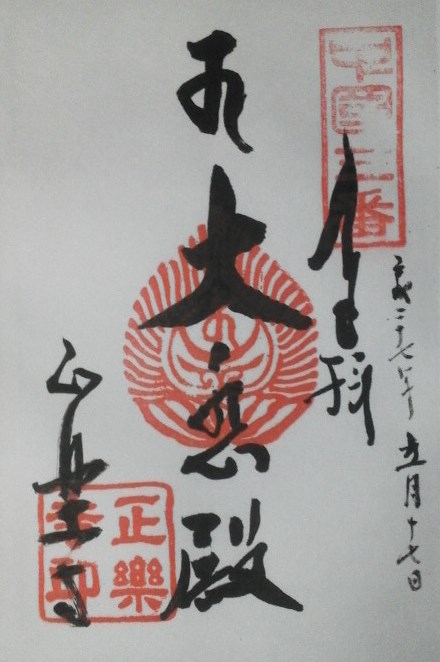 中國三番
奉拝
平成二十七年五月十七日
大悲殿
正楽寺
正樂寺印